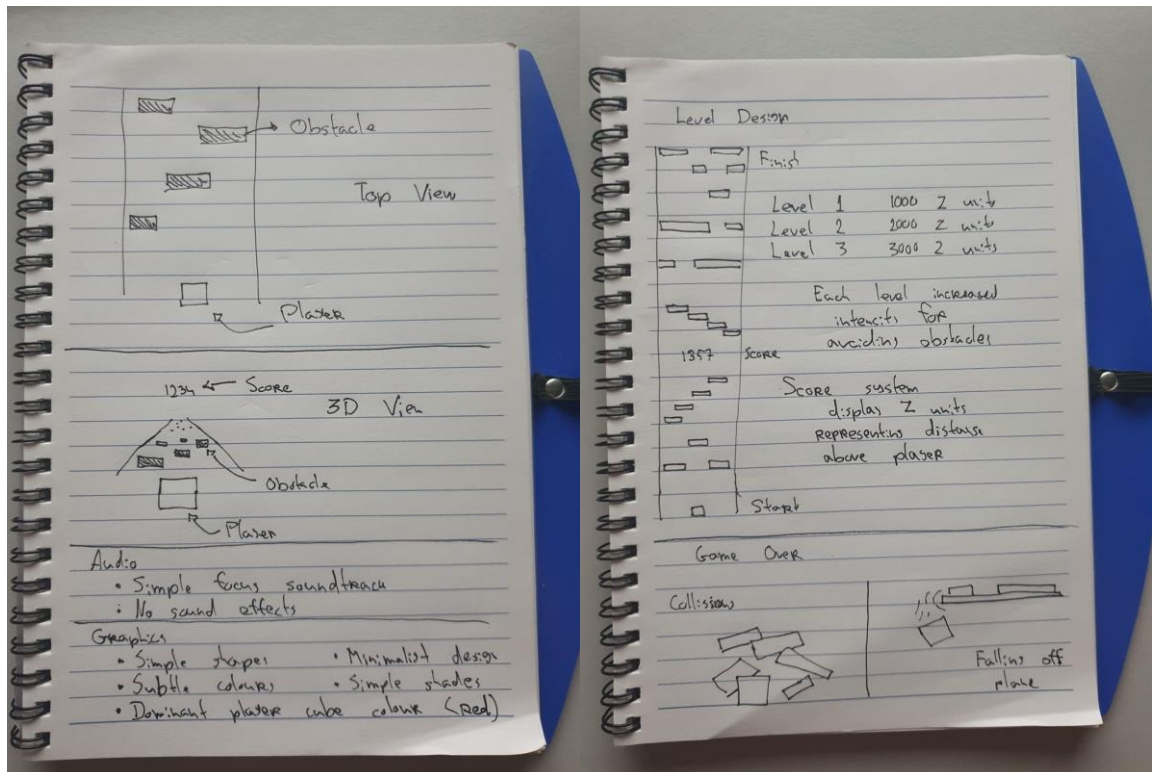 Obstacle
Top View
Player
1234 ← Score
3D View
Obstacle
Player
Audio
• Simple focus soundtrack
• No sound effects
Graphics
• Simple shapes
• Minimalist design
• Subtle colours
• Simple shades
• Dominant player cube colour (Red)
Level Design
Finish
Level 1 1000 Z units
Level 2 2000 Z units
Level 3 3000 Z units
Each level increased
intencity for
avoiding obstacles
1357 Score
Score system
display Z units
representing distance
above player
Start
Game Over
Collisions
Falling off
plane